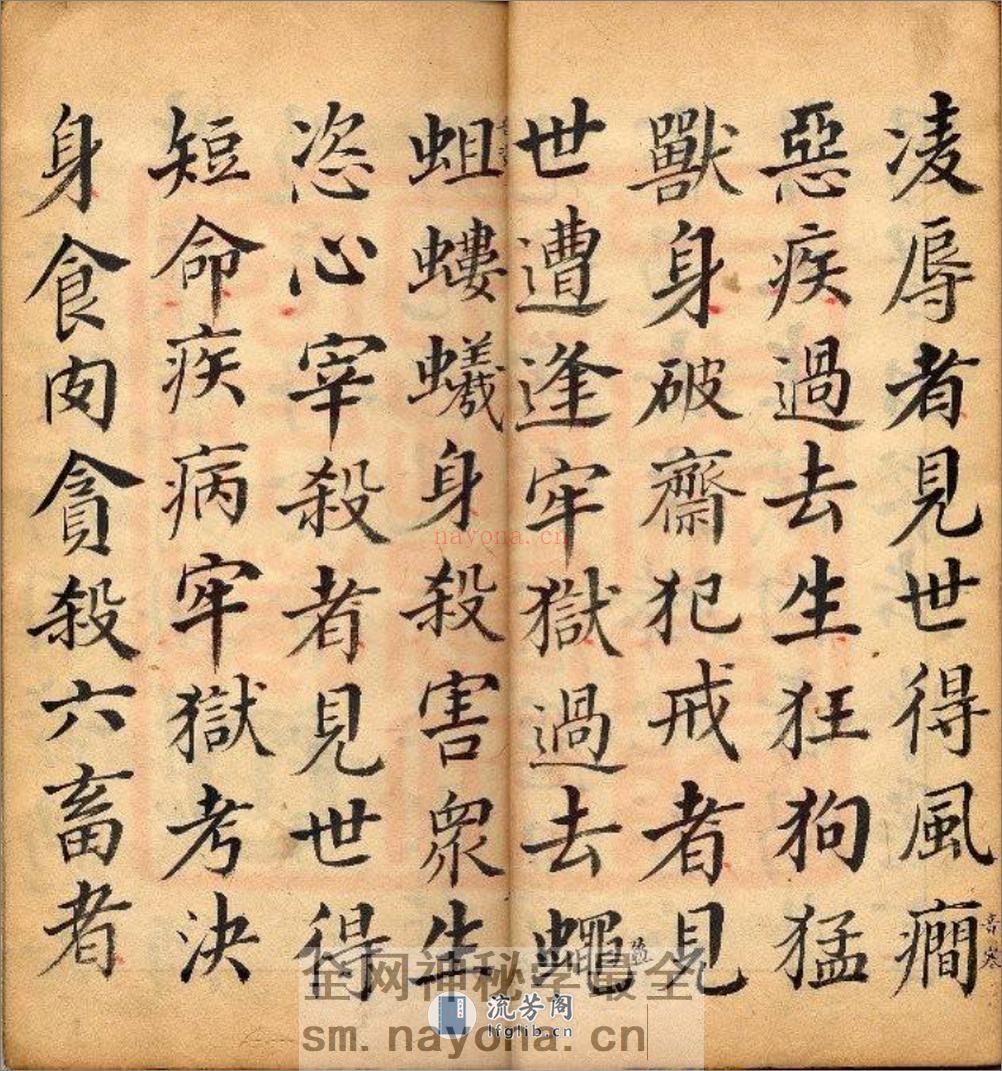 凌辱者見世得風癇
惡疾過去生狂狗猛
獸身破齋犯戒者見
世遭逢牢獄過去蠅
蛆螻蟻身殺害衆生
恣心宰殺者見世得
短命疾病牢獄考決
身食肉貪殺六畜者
nayona.cn
全网神秘学最全
流芳阁
lfglib.cn
sm.nayona.cn